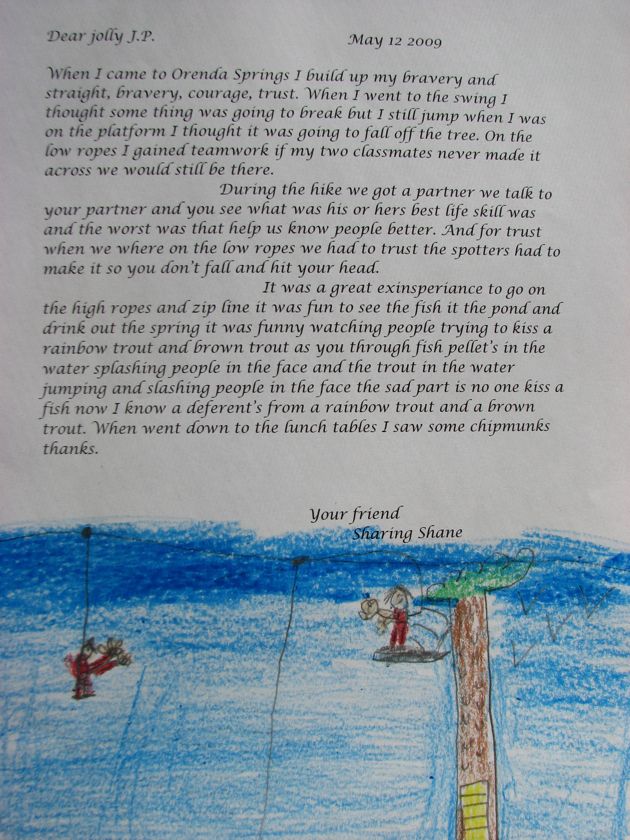 Dear jolly J.P.
May 12 2009
When I came to Orenda Springs I build up my bravery and
straight, bravery, courage, trust. When I went to the swing I
thought some thing was going to break but I still jump when I was
on the platform I thought it was going to fall off the tree. On the
low ropes I gained teamwork if my two classmates never made it
across we would still be there.
During the hike we got a partner we talk to
your partner and you see what was his or hers best life skill was
and the worst was that help us know people better. And for trust
when we where on the low ropes we had to trust the spotters had to
make it so you don't fall and hit your head.
It was a great exinsperiance to go on
the high ropes and zip line it was fun to see the fish it the pond and
drink out the spring it was funny watching people trying to kiss a
rainbow trout and brown trout as you through fish pellet's in the
water splashing people in the face and the trout in the water
jumping and slashing people in the face the sad part is no one kiss a
fish now I know a deferent's from a rainbow trout and a brown
trout. When went down to the lunch tables I saw some chipmunks
thanks.
Your friend
Sharing Shane